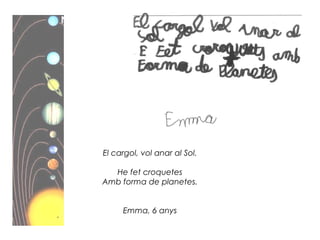 El cargol vol anar al
Sol
E Eet croquetes amb
Eorma de Elanetes
Emma
El cargol, vol anar al Sol.
He fet croquetes
Amb forma de planetes.
Emma, 6 anys